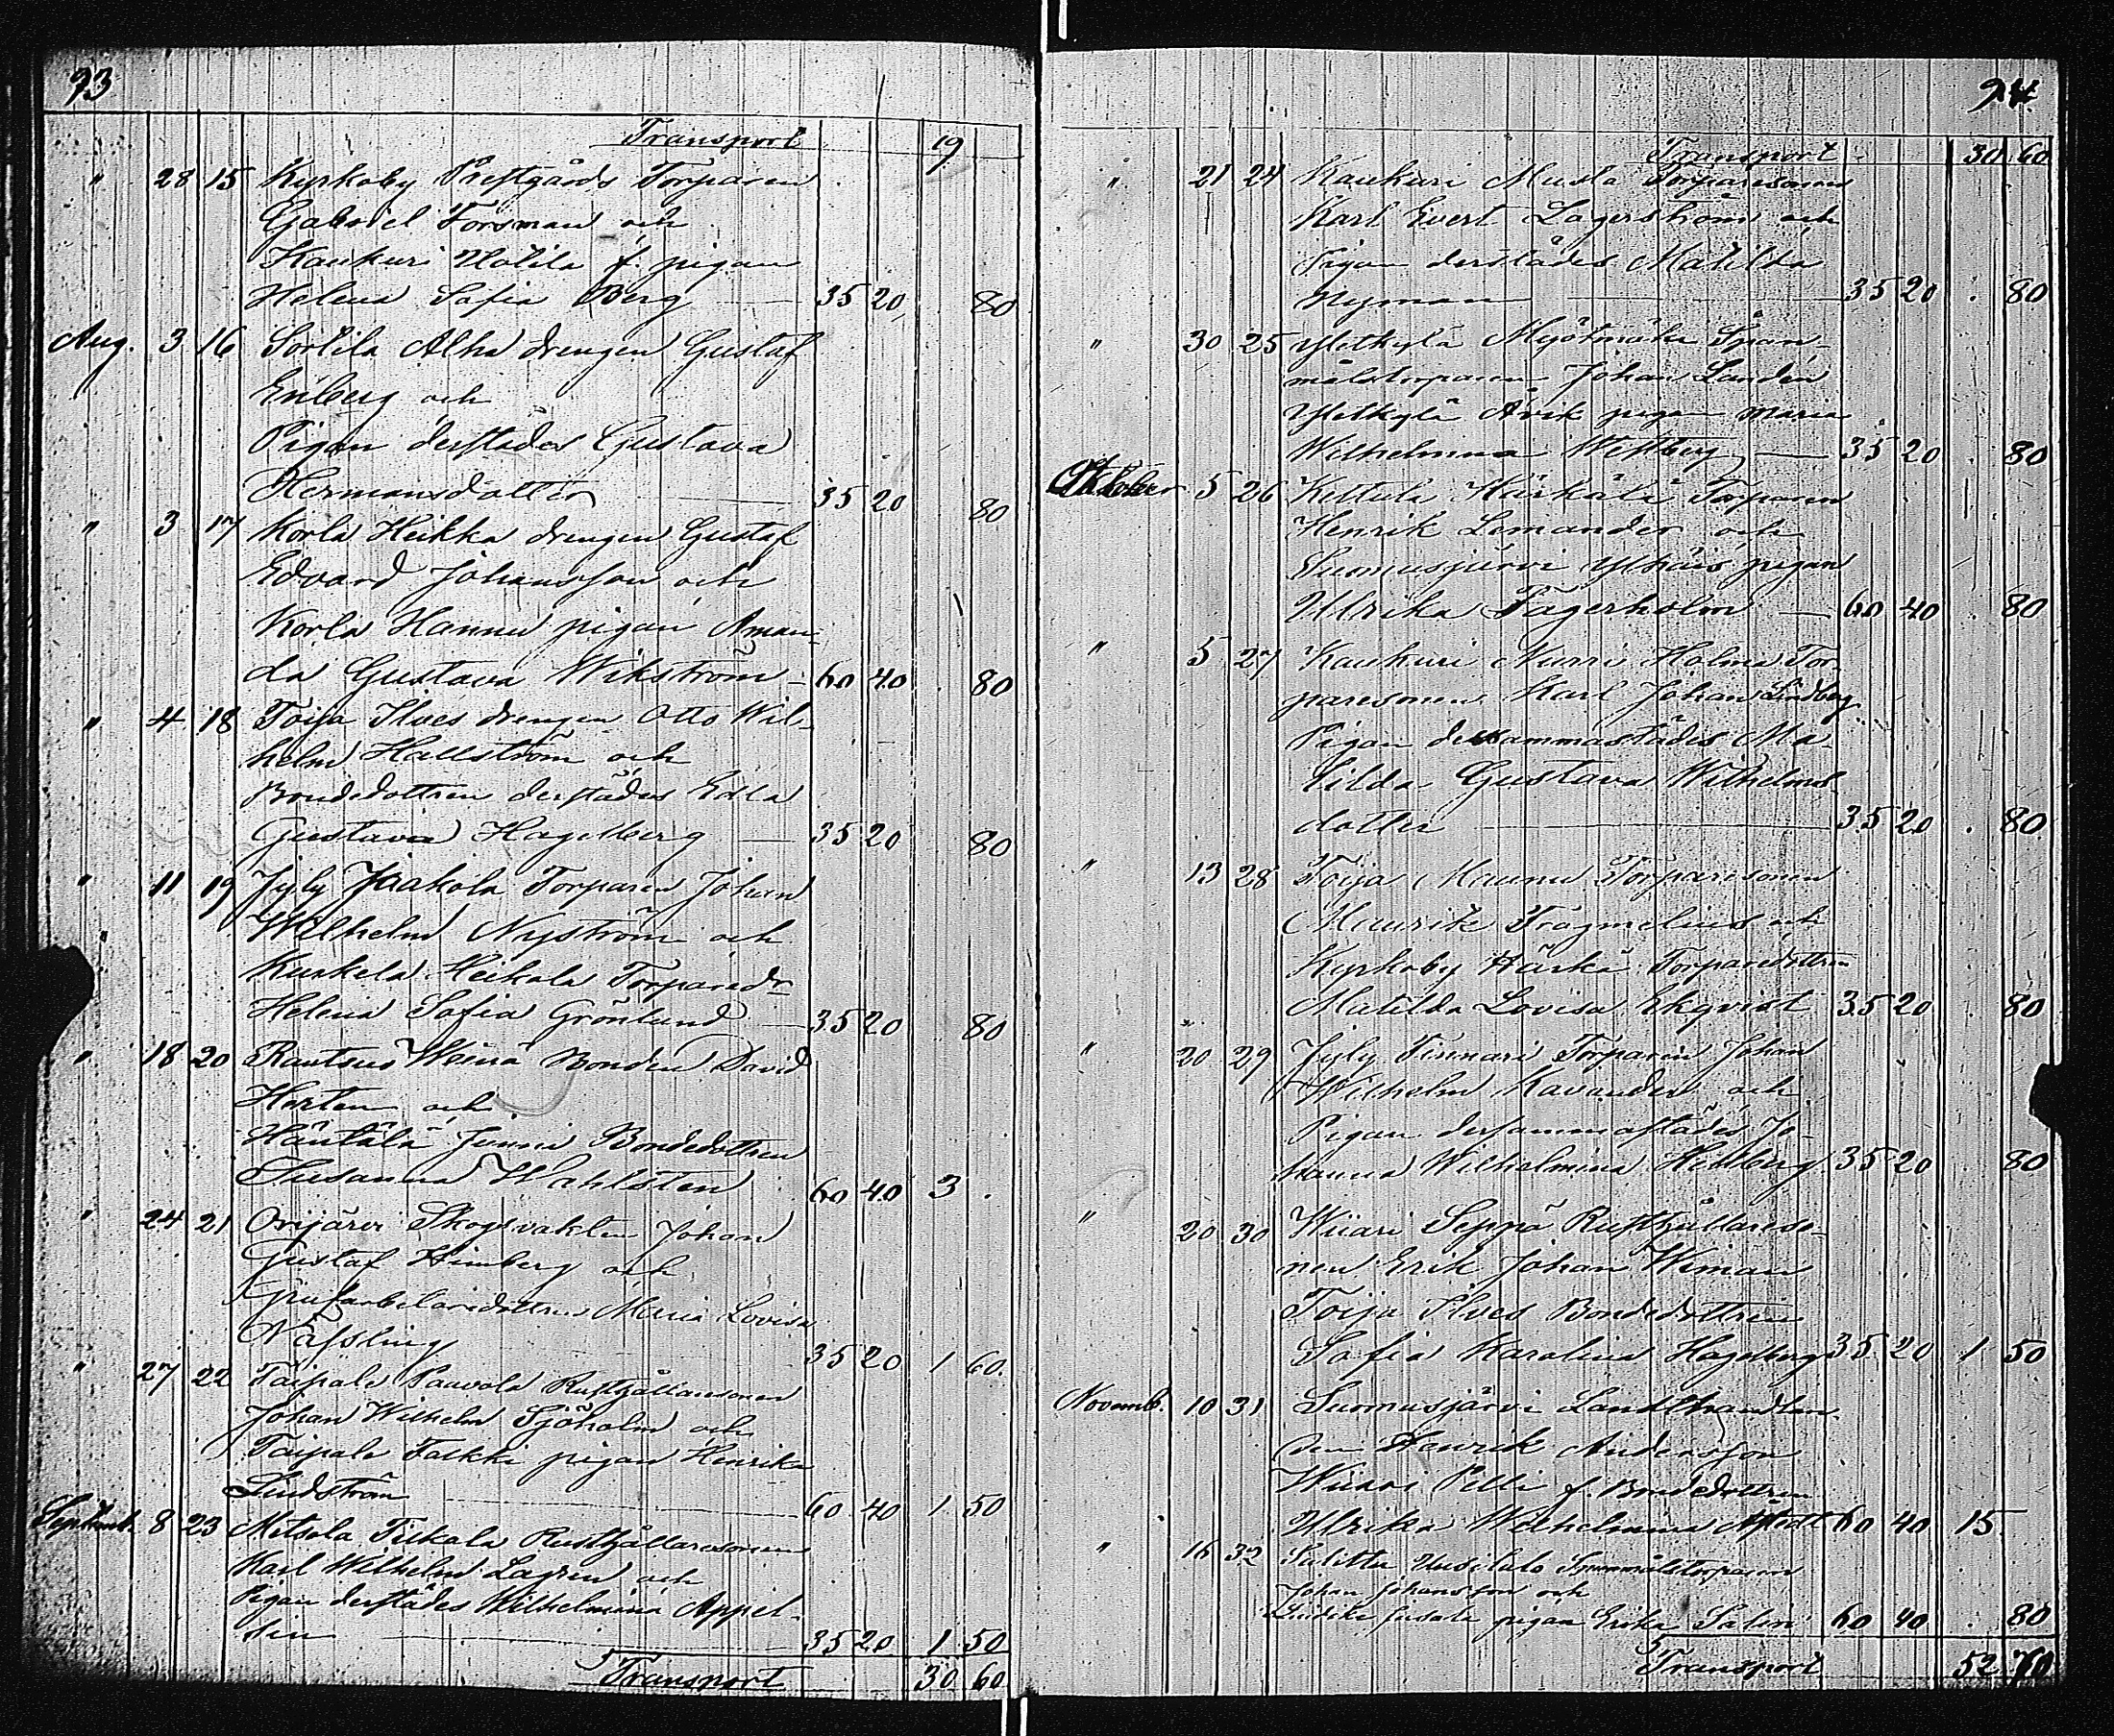 93
Transport 19
" 28 15 Kyrkoby Prestgårds Torparen
Gabriel Forsman och
Kaukuri Uotila f. pigan
Helena Sofia Berg 35 20 . 80
Aug. 3 16 Sortila Alha drengen Gustaf
Enberg och
Pigan derstädes Gustava
Hermansdotter 35 20 80
" 3 17 Korla Heikka drengen Gustaf
Edvard Johansson och
Korla Hannu pigan Aman-
da Gustava Wikström 60 40 . 80
" 4 18 Toija Ilves drengen Otto Wil-
helm Hallström och
Bondedottren derstädes Edla
Gustava Hagelberg 35 20 80
" 11 19 Jyly Jaakola Torparen Johan
Wilhelm Nyström och
Kurkela Heikola Torparedr
Helena Sofia Grönlund 35 20 80
" 18 20 Rautsuo Weinä Bonden David
Horten och
Häntälä Junni Bondedottren
Susanna Wahlsten 60 40 3 .
" 24 21 Orijärvi Skogsvakten Johan
Gustaf Himberg och
Grufarbetaredottren Maria Lovisa
Näsling 35 20 1 60.
" 27 22 Taipale Paavola Rusthållaresonen
Johan Wilhelm Sjöholm och
Taipale Falkki pigan Henrika
Lindström 60 40 1 50
Septemb. 8 23 Metsola Tilkala Rusthållaresonen
Karl Wilhelm Lagren och
Pigan derstädes Wilhelmina Appel-
sin 35 20 1 50
Transport 30 60
94
Transport 30 60
" 21 24 Kaukuri Musta Torparesonen
Karl Evert Lagerström och
Pigan derstädes Matilda
Nyman 35 20 . 80
" 30 25 Yltkylä Span-
målstorparen Johan Landén
Yltkylä pigan Maria
Wilhelmina Westberg 35 20 . 80
Oktober 5 26 Kettula Härkälä Torparen
Henrik Lemander och
Suomusjärvi pigan
Ulrika Fagerholm 60 40 . 80
" 5 27 Kaukuri Nurri Holma Tor-
paresonen Karl Johan Lindberg
Pigan dersammastädes Ma-
tilda Gustava Wilhelms-
dotter 35 20 . 80
" 13 28 Toija Maunu Torparesonen
Maurik Tragmelius och
Kyrkoby Härkä Torparedottren
Matilda Lovisa Ekqvist 35 20 80
" 20 29 Jyly Tinnari Torparen Johan
Wilhelm Kavander och
Pigan dersammastädes Jo-
hanna Wilhelmina Hellberg 35 20 80
" 20 30 Wiiari Seppä Rusthållareso-
nen Erik Johan Wiman
Toija Ilves Bondedottren
Sofia Karolina Hagelberg 35 20 1 50
Novemb. 10 31 Suomusjärvi Landthandlan-
den Henrik Andersson
Wiiari Pelli f. Bondedottren
Ulrika Wilhelmina 60 40 15
" 16 32 Salitta Uusitalo Spanmålstorparen
Johan Johansson och
pigan Erika Salin 60 40 . 80
Transport 52 70